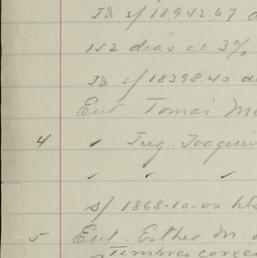 Id s/ 18942.67 d
152 dias al 3%
Id s/ 18398.40 de
Ent. Tomás M
4 " Ing. Joaquin
" " "
s/ 1868-10-00 hta
5 Ent. Esther M.
timbres corre